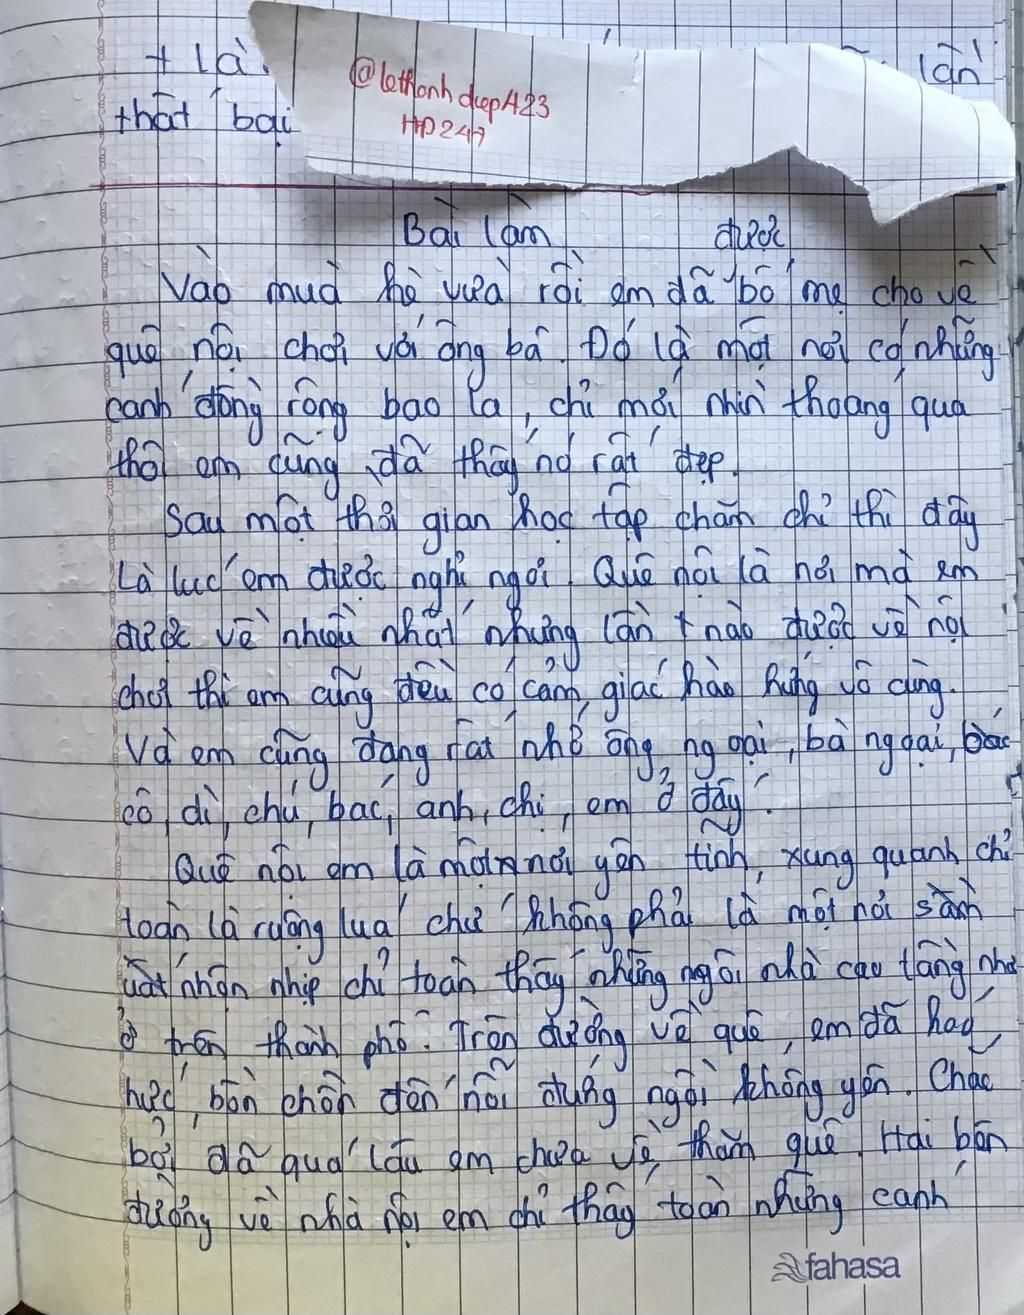 + Là lần
thất bại
@lethanhdiepA23
HP247
Bài làm
được
Vào muà hè vừa rồi em đã bố mẹ cho về
quê nội chơi với ông bà. Đó là một nơi có những
cánh đồng rộng bao la, chỉ mới nhìn thoáng qua
thôi em cũng đã thấy nó rất đẹp.
Sau một thời gian học tập chăm chỉ thì đây
là lúc em được nghỉ ngơi. Quê nội là nơi mà em
được về nhiều nhất nhưng lần nào được về nội
chơi thì em cũng đều có cảm giác hào hứng vô cùng.
Và em cũng đang rất nhớ ông ngoại, bà ngoại, bác
cô, dì, chú, bác, anh, chị, em ở đấy.
Quê nội em là một nơi yên tĩnh, xung quanh chỉ
toàn là ruộng lúa chứ không phải là một nơi sầm
uất nhộn nhịp chỉ toàn thấy những ngôi nhà cao tầng như
ở trên thành phố. Trên đường về quê, em đã háo
hức, bồn chồn đến nỗi đứng ngồi không yên. Chắc
bởi đã quá lâu em chưa về thăm quê. Hai bên
đường về nhà nội em chỉ thấy toàn những cánh
fahasa